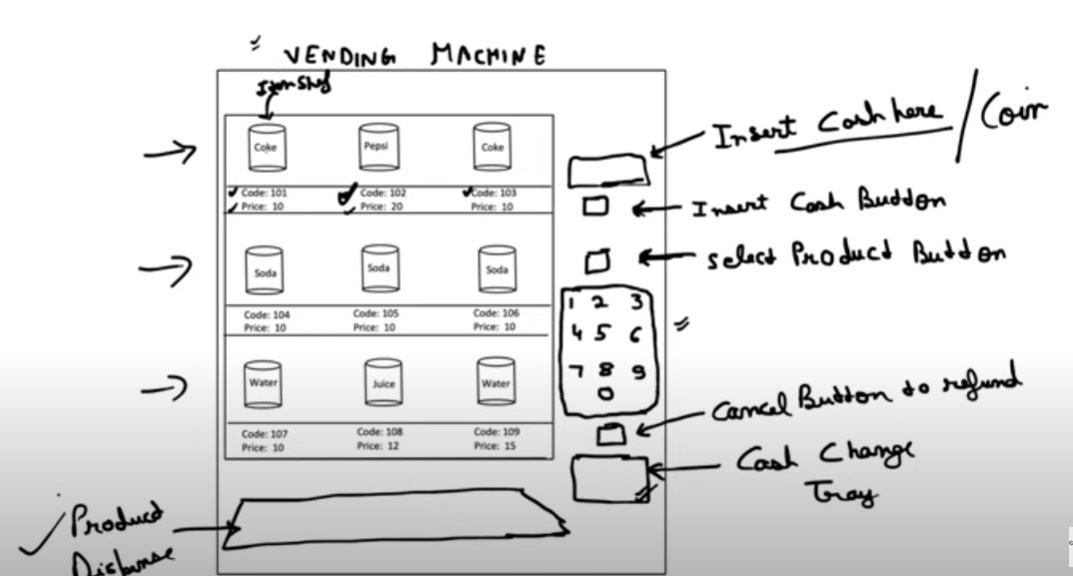 VENDING MACHINE
Item Shelf
Coke Pepsi Coke
Code: 101 Code: 102 Code: 103
Price: 10 Price: 20 Price: 10
Soda Soda Soda
Code: 104 Code: 105 Code: 106
Price: 10 Price: 10 Price: 10
Water Juice Water
Code: 107 Code: 108 Code: 109
Price: 10 Price: 12 Price: 15
Insert Cash here / Coin
Insert Cash Button
select Product Button
1 2 3
4 5 6
7 8 9
0
Cancel Button to refund
Cash Change
Tray
Product
Dispense